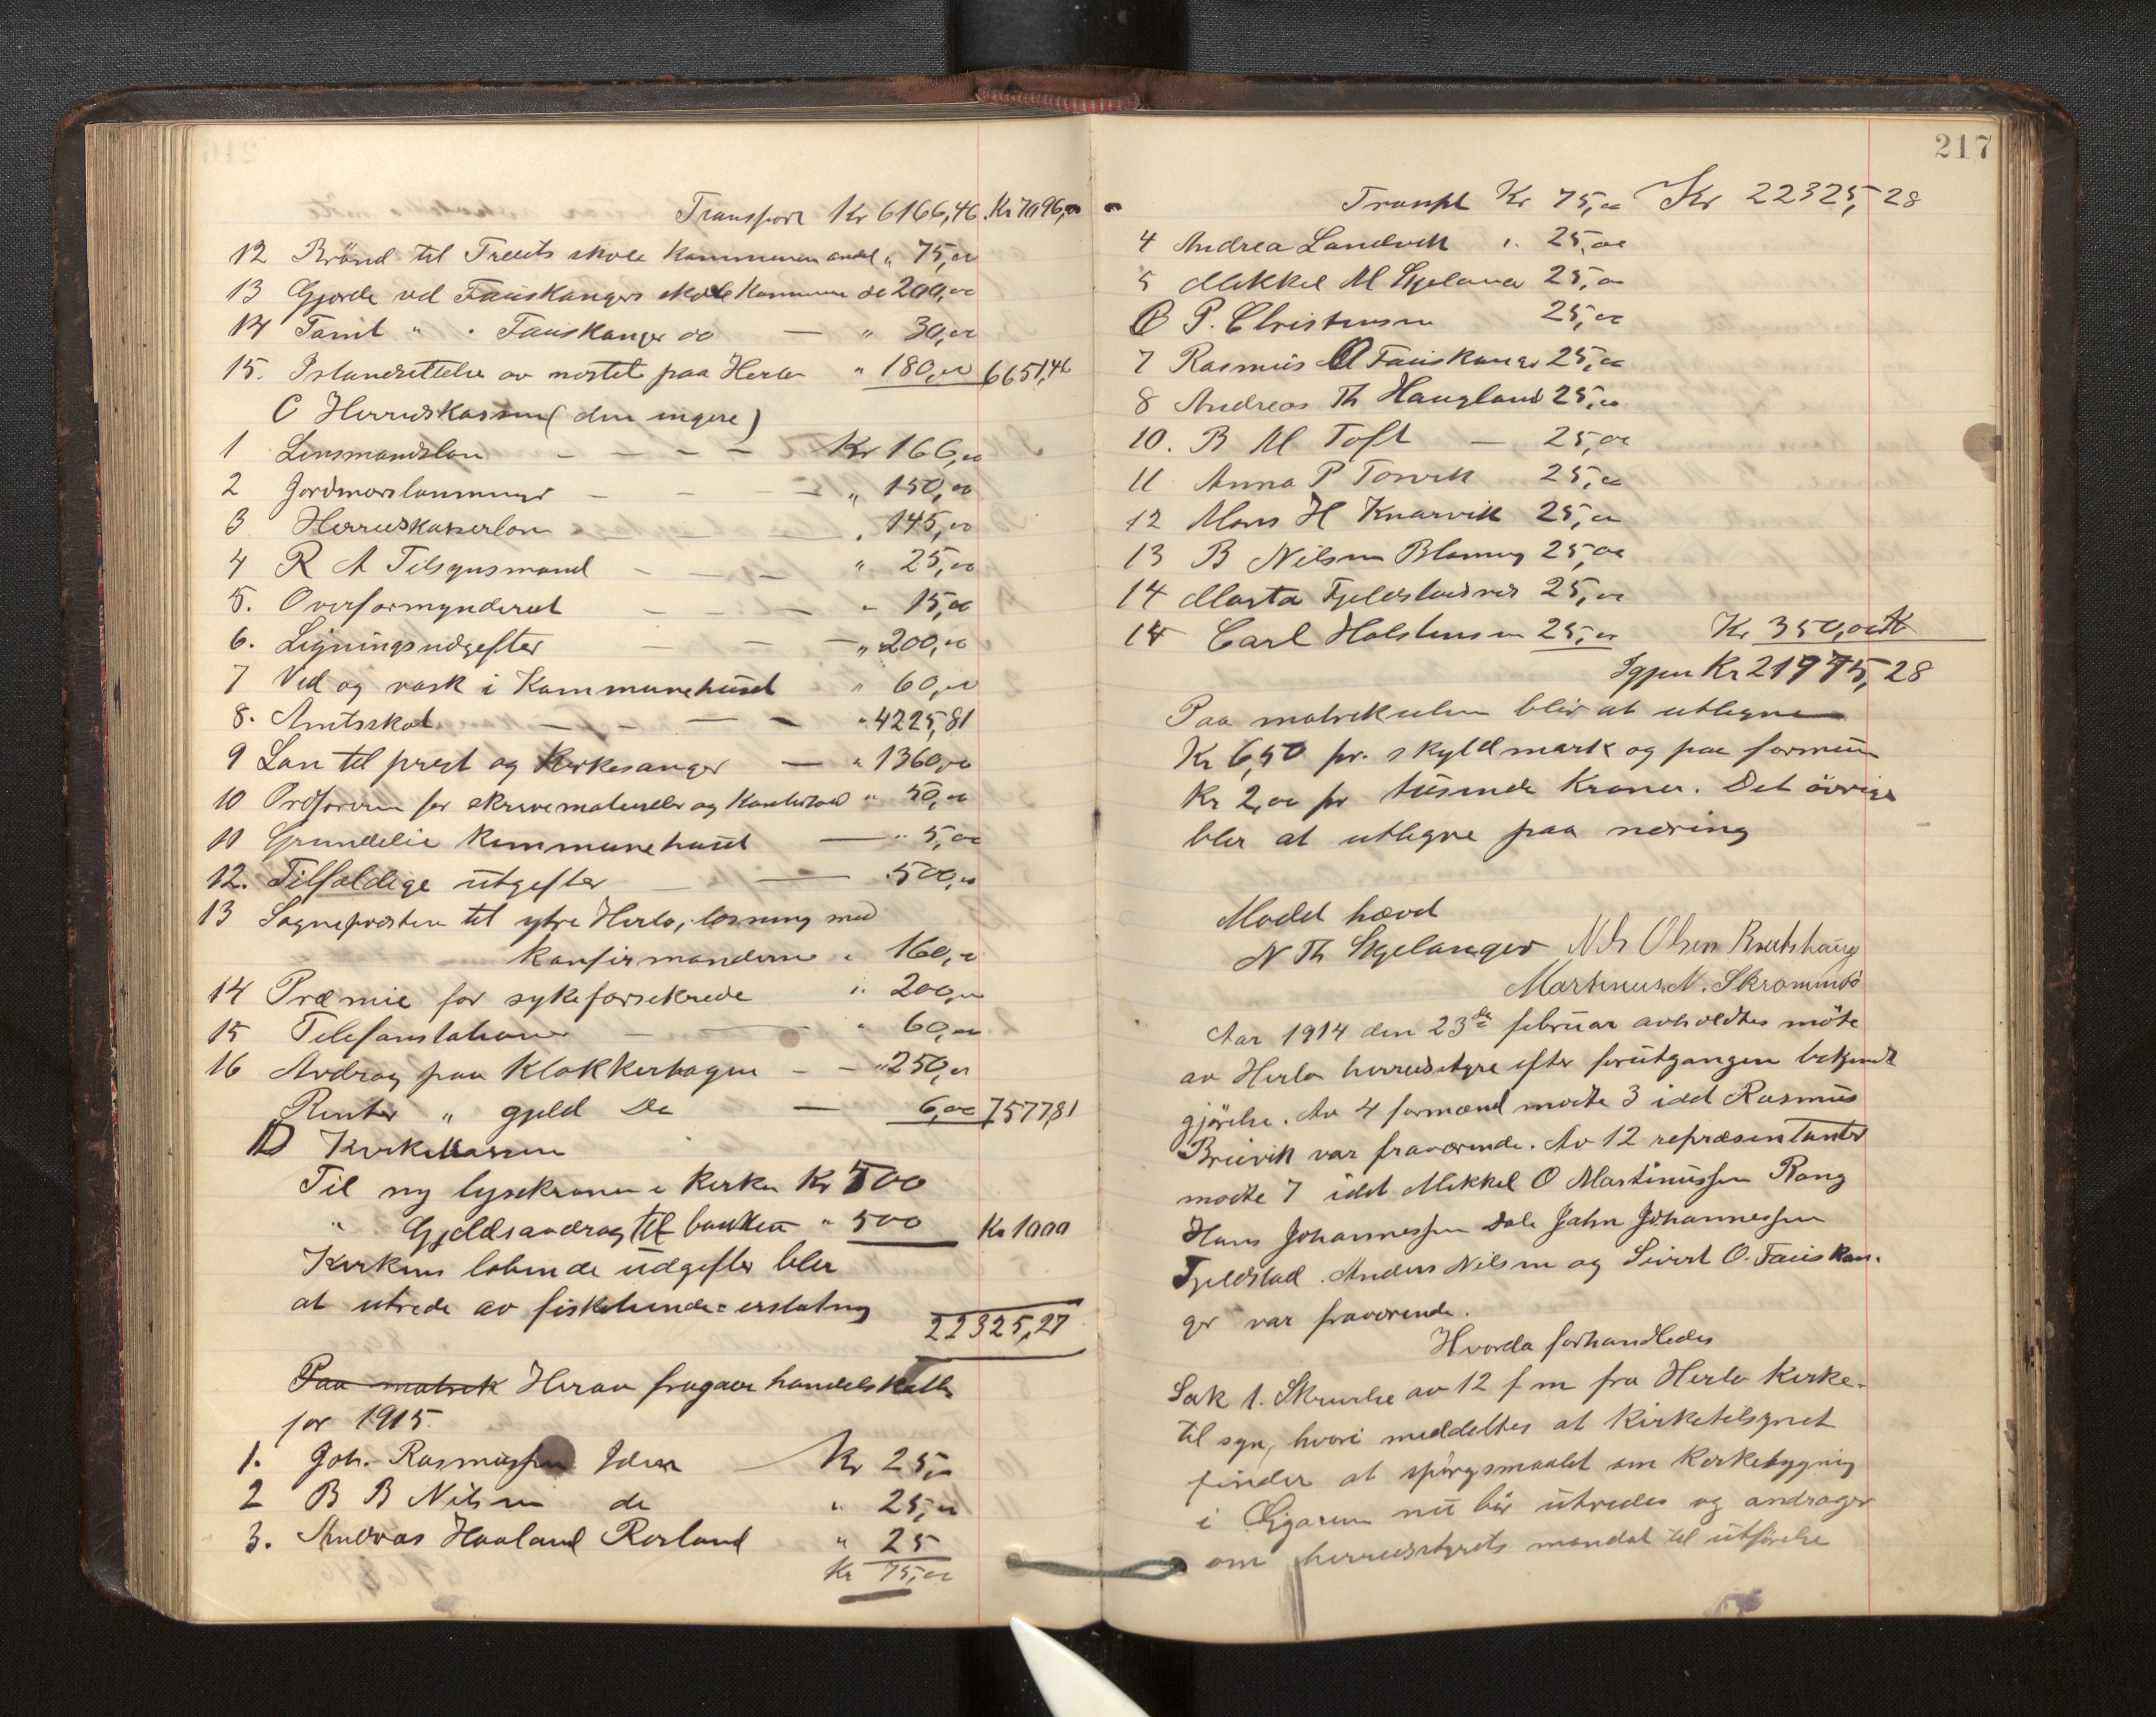 Transport Kr 6166,46. Kr 7096,00
12 Brönd til Treets skole kommunens andel " 75,00
13 Gjærde ved Fauskangers skole kommun do 200,00
14 Tomt " " Fauskanger do — " 30,00
15. Istandsettelse av nøstet paa Herlø " 180,00 6651,46
C Herredskassen (den ingere)
1 Lensmandsløn - - - - Kr 166,00
2 Jordmorslønninger - - - " 150,00
3 Herredskasserløn - - - " 145,00
4 R A Tilsynsmand - - - " 25,00
5. Overformynderiet - - - " 15,00
6. Ligningsudgifter - - - " 200,00
7 Ved og vask i Kommunehuset " 60,00
8. Amtsskat - - - - " 4225,81
9 Løn til prest og kirkesanger — " 1360,00
10 Ordføreren for skrivematerialer og kontorhold " 50,00
11 Grundleie kommunehuset — " 5,00
12. Tilfældige utgifter — 500,00
13 Sogneprosten til ytre Herlø, læsning med
konfirmanderne " 160,00
14 Præmie for sykeforsikrede " 200,00
15 Telefonstationer — " 60,00
16 Avdrag paa Klokkerhagen - - " 250,00
Renter " gjeld do — 6,00 7577,81
D Kirkekassen
Til ny lysekrone i kirken Kr 500
" Gjeldsavdrag til banken " 500 Kr 1000
Kirkens løbende udgifter blir
at utrede av fisketiende-erstatning
22325,27
Paa matrik Herav fragaar handelskatte
for 1915.
1. Joh. Rasmussen Idsø Kr 25,00
2 B B Nilsen do " 25,00
3. Andreas Haaland Rosland " 25
Kr 75,00
217
Transpt Kr 75,00 Kr 22325,28
4 Andrea Landvik " 25,00
5 Mikkel M Skjelanger 25,00
6 P. Christensen 25,00
7 Rasmus A Fauskanger 25,00
8 Andreas Th Haugland 25,00
10. B M Toft — 25,00
11 Anna P Torvik 25,00
12 Mons H Knarvik 25,00
13 B Nilsen Blomøy 25,00
14 Marta Fjeldstadvik 25,00
14 Carl Holstensen 25,00 Kr 350,00
Igjen Kr 21975,28
Paa matrikulen blir at utligne
Kr 6,50 pr. skyldmark og paa formue
Kr 2,00 pr tusende kroner. Det øvrige
blir at utligne paa næring
Mødet hævd
N Th Skjelanger Nils Olsen Breitshaug
Martinus N. Skrammebø
Aar 1914 den 23de februar avholdtes møte
av Herlø herredsstyre efter forutgangen bekjendt
gjørelse. Av 4 formænd møtte 3 idet Rasmus
Breivik var fraværende. Av 12 repræsentanter
møtte 7 idet Mikkel O Martinussen Rong
Hans Johannessen Dale Jahn Johannessen
Fjeldstad. Anders Nilsen og Sivert O. Fauskan-
ger var fraværende.
Hvorda forhandledes
Sak 1. Skrivelse av 12 f m fra Herlø kirke-
tilsyn, hvori meddeltes at kirketilsynet
finder at spørgsmaalet om kirkebygning
i Øigaren nu bør utredes og andrager
om herredsstyrets mandat til utførelse